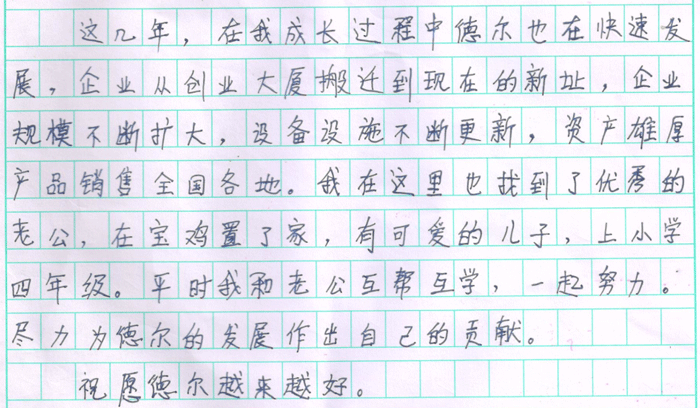 这几年，在我成长过程中德尔也在快速发
展，企业从创业大厦搬迁到现在的新址，企业
规模不断扩大，设备设施不断更新，资产雄厚
产品销售全国各地。我在这里也找到了优秀的
老公，在宝鸡置了家，有可爱的儿子，上小学
四年级。平时我和老公互帮互学，一起努力。
尽力为德尔的发展作出自己的贡献。
祝愿德尔越来越好。